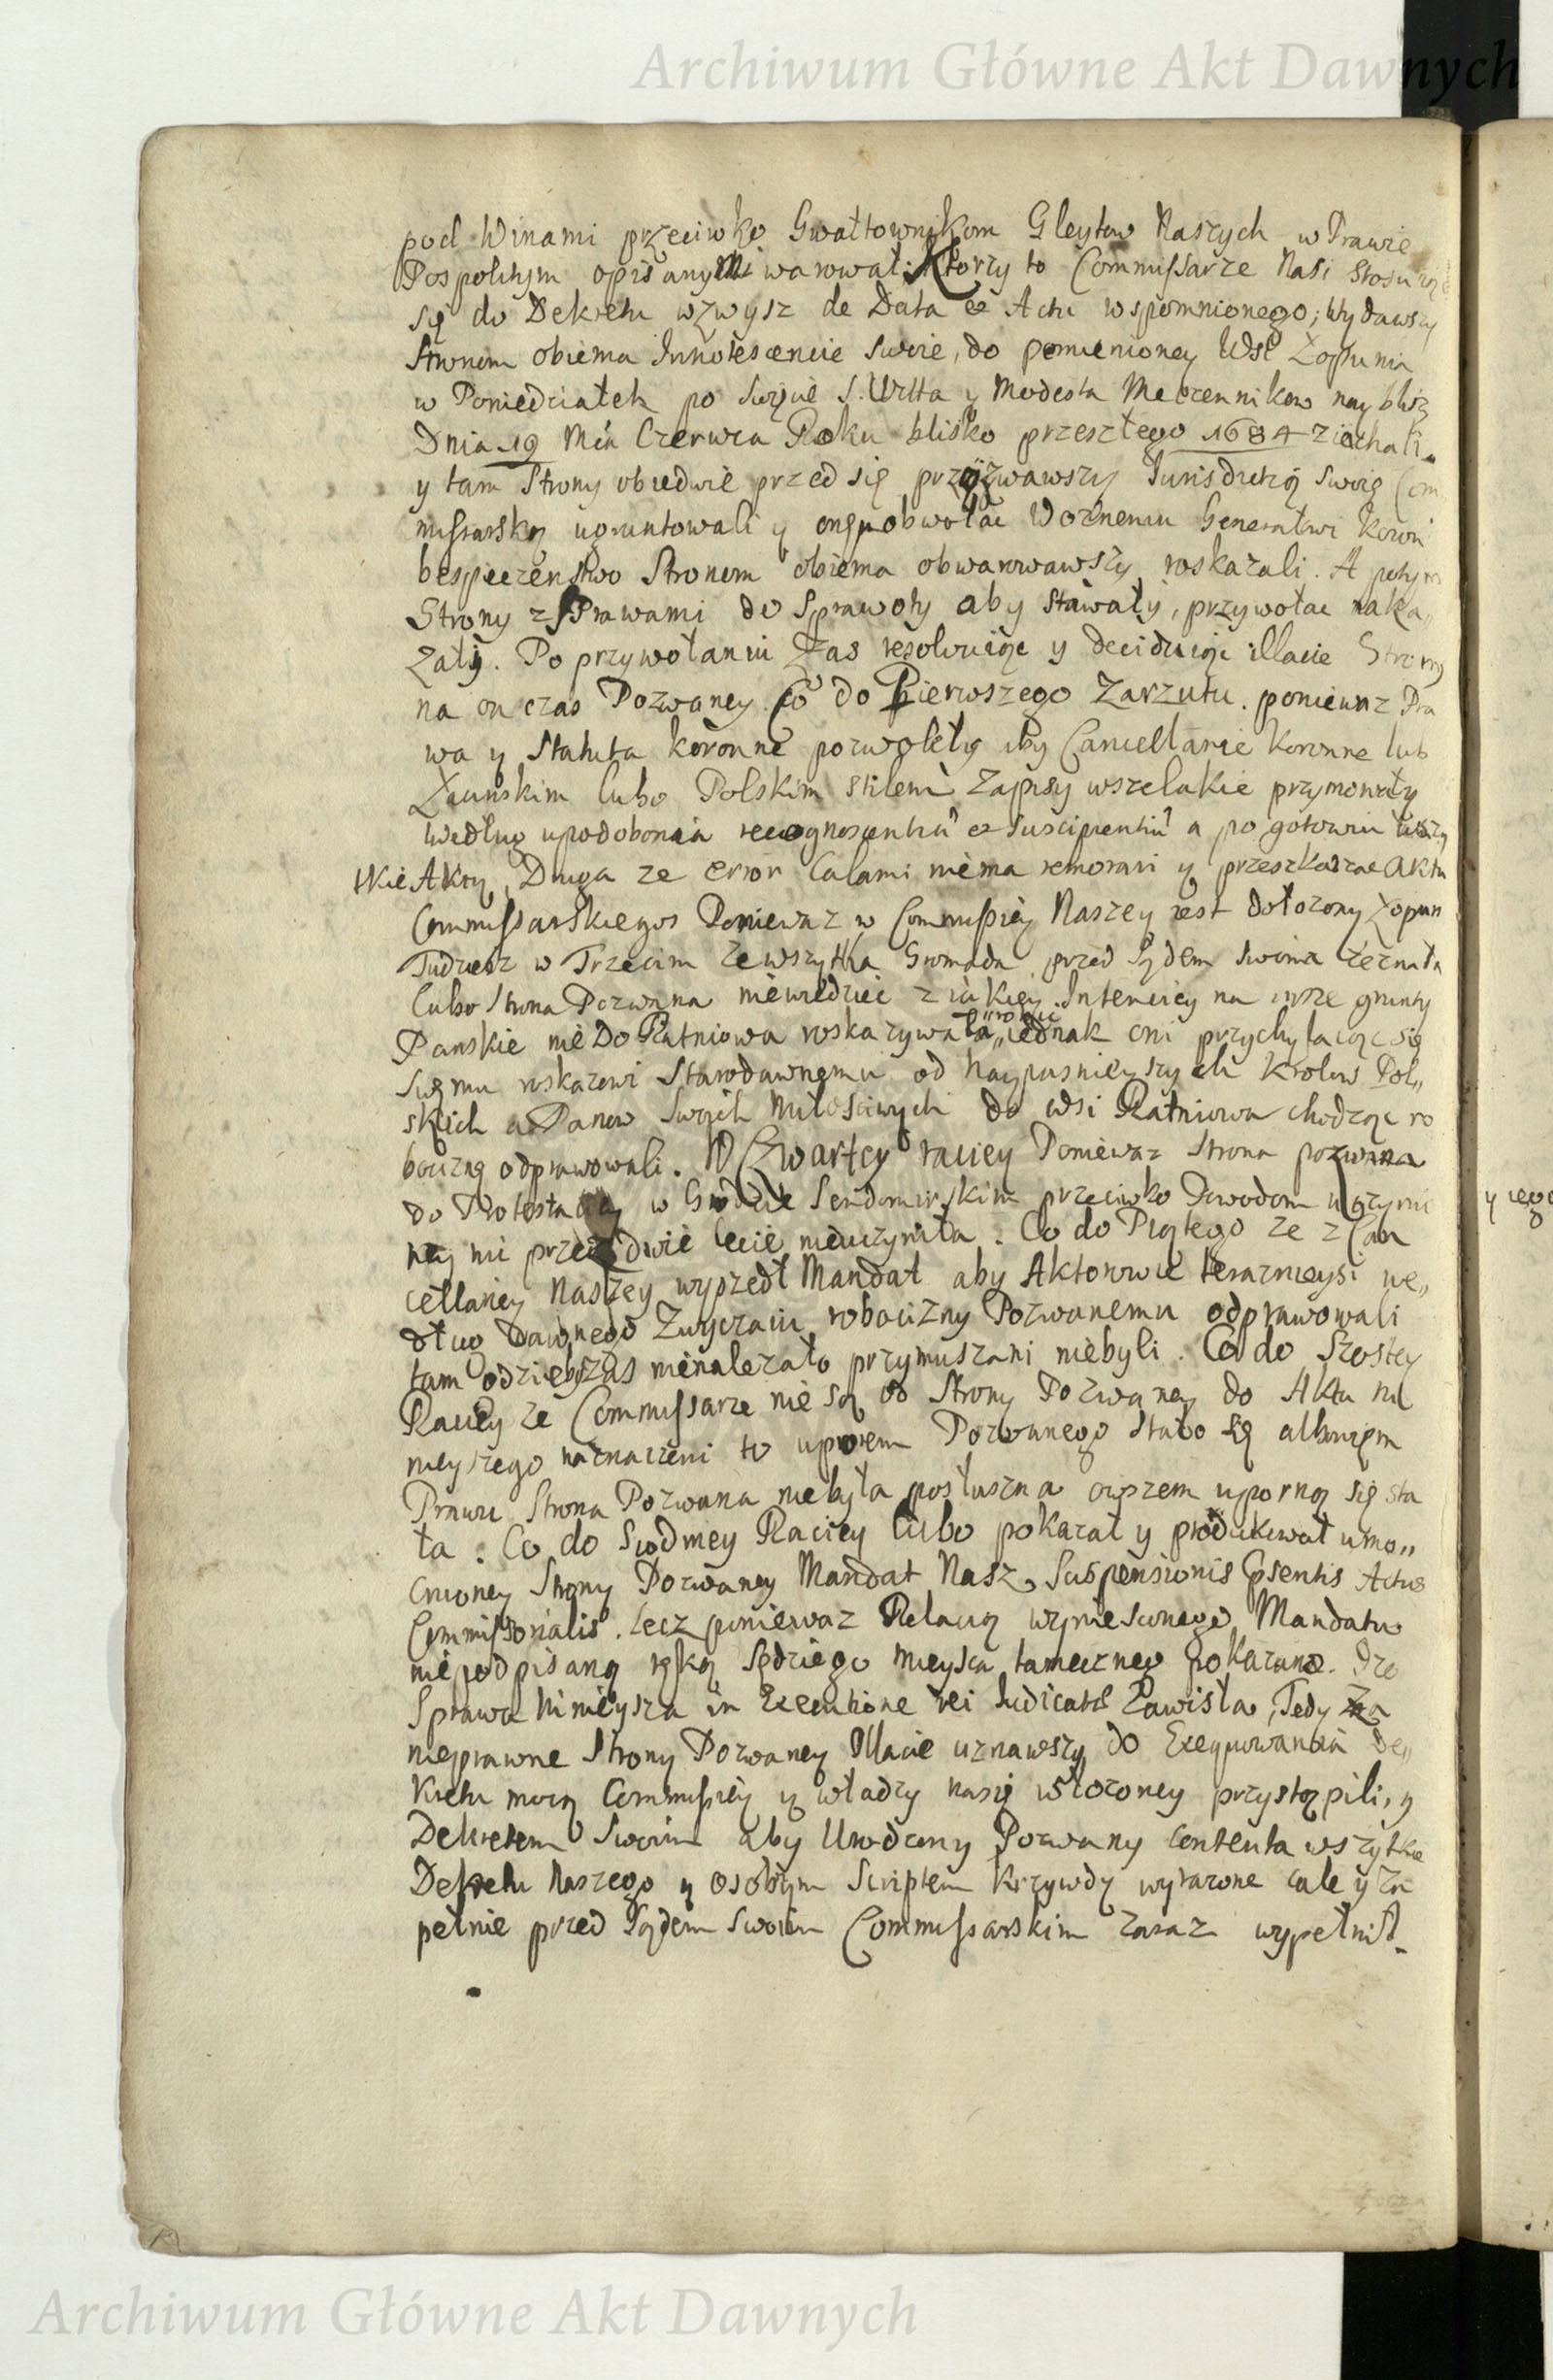 Archiwum Główne Akt Dawnych
pod Winami przeciwko Gwałtownikom Gleytow Naszych w Prawie
Pospolitym opisanymi warował. Ktorzy to Commissarze Nasi stosuiąc
się do Dekretu wzwysz de Data et Actu wspomnionego; wydawszy
Stronom obiema Innotescencie swoie, do pomienioney Wsi Łopunia
w Poniedziałek po Swięcie S. Witta y Modesta Męczennikow nay bliz
Dnia 19 Mca Czerwca Roku blisko przeszłego 1684 ziachali„
y tam Strony obiedwie przed się przyzwawszy Iurisdictią swoię Com
missarską ugruntowali y onę obwołac Woznemu Generałowi Koron
bespieczenstwo Stronom obiema obwarowawszy roskazali. A potym
Strony z Prawami do Sprawoty aby stawały, przywołac naka„
zały. Po przywołaniu zas resolwuiąc y deciduiąc illacie Strony
na on czas Pozwaney. Co do Pierwszego Zarzutu. poniewaz Pra
wa y Statuta koronne pozwoleły aby Cancellarie Koronne lub
Łacinskim lubo Polskim stilem Zapisy wszelakie przymowały
według upodobania recognoscentiu et suscipientiu a po gotowiu wszy
tkie Akty, Druga ze error Calami niema remorari y przeszkadzac Aktu
Commissarskiego Poniewaz w Commissiey Naszey iest dołozony Łopun
Tudziesz w Trzecim ze wszytka Gromada przed Sądem swoima zeznała
lubo Strona Pozwana niewiedziec z iakiey Intenciey na insze grunty
robic
Panskie nie Do Ratniowa roskazywała„ iednak oni przychylaiąc się
swemu roskazowi Starodawnemu od Nayiasnieyszych Krolow Pol„
skich a Panow Swych Miłosciwych do wsi Ratniowa chodząc ro
bociznę odprawowali. W Czwartey raciey Poniewaz Strona pozwana
do Protestaciey w Grodzie Sendomirskim przeciwko Dowodom uczynio
ney ni przez dwie lecie nieuczyniła. Co do Piątego ze z Can
cellariey Naszey wyszedł Mandat aby Aktorowie terazneysi we„
dług Dawnego Zwyczaiu robocizny Pozwanemu odprawowali
tam gdzieby zas nienalezało przymuszani niebyli. Co do Szostey
Raciey ze Commissarze nie są od Strony Pozwaney do Aktu ni
nieyszego naznaczeni to uporem Pozwanego stało się albowiem
Prawu Strona Pozwana niebyła posłuszna owszem uporną się sta
ła. Co do Siodmey Raciey lubo pokazał y produkował umo„
cniony Strony Pozwaney Mandat Nasz Suspensionis Psentis Actus
Commissorialis. lecz poniewaz Relacią wyniesionego Mandatu
niepodpisaną ręką Sędziego mieysca tamecznego pokazano. Ize
Sprawa Ninieysza in Executione rei Iudicatae Zawisła, Tedy za
nieprawne Strony Pozwaney Illacie uznawszy do Exequowania De„
kretu mocą Commissiey y władzy nasię włozoney przystąpili, y
Dekretem Swoim aby Urodzony Pozwany contenta wszytkie
Dekretu Naszego y osobnym Scriptem krzywdy wyrazone cale y zu
pełnie przed Sądem Swoim Commissarskim zaraz wypełnił.
y iego
Archiwum Główne Akt Dawnych